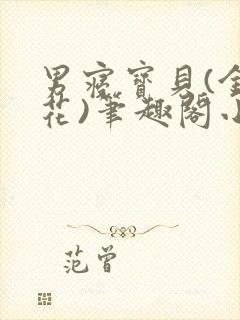 男寇寶貝(金
花)筆趣閣小
范曾